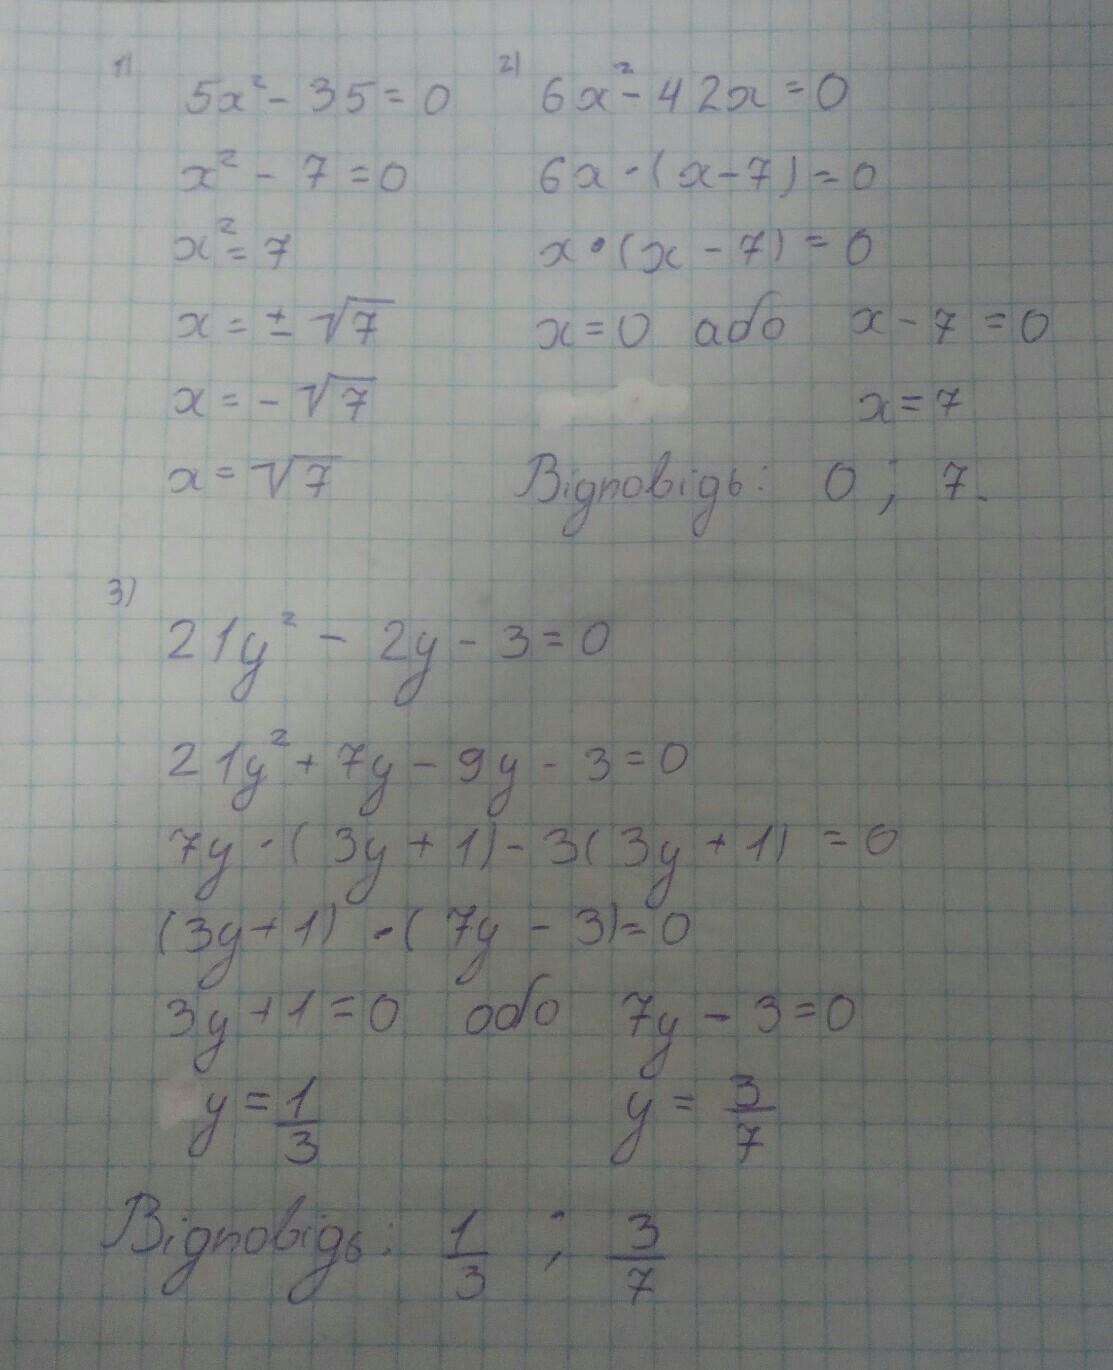 1)
5x² - 35 = 0
x² - 7 = 0
x² = 7
x = ± √7
x = - √7
x = √7
2)
6x² - 42x = 0
6x · (x - 7) = 0
x · (x - 7) = 0
x = 0 або x - 7 = 0
x = 7
Відповідь: 0 ; 7.
3)
21y² - 2y - 3 = 0
21y² + 7y - 9y - 3 = 0
7y · (3y + 1) - 3(3y + 1) = 0
(3y + 1) · (7y - 3) = 0
3y + 1 = 0 або 7y - 3 = 0
y = 1/3 y = 3/7
Відповідь: 1/3 ; 3/7